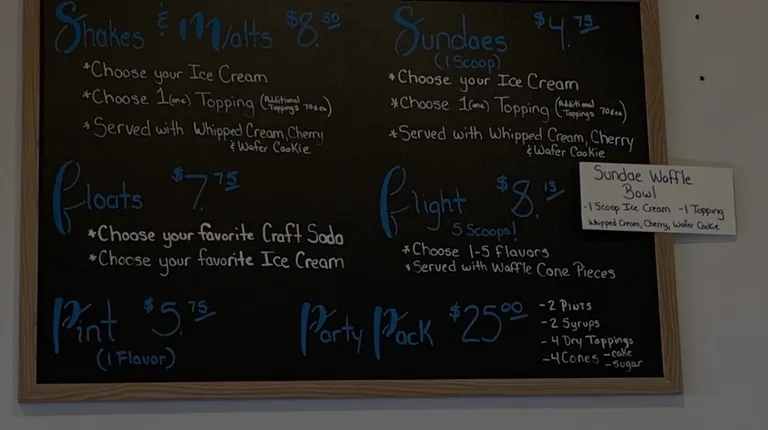 Shakes & Malts $8.50
*Choose your Ice Cream
*Choose 1(one) Topping (Additional Toppings 70¢ea)
*Served with Whipped Cream, Cherry
& Wafer Cookie
Sundaes $4.75
(1 Scoop)
*Choose your Ice Cream
*Choose 1(one) Topping (Additional Toppings 70¢ea)
*Served with Whipped Cream, Cherry
& Wafer Cookie
Floats $7.75
*Choose your favorite Craft Soda
*Choose your favorite Ice Cream
Flight $8.
5 Scoops!
*Choose 1-5 Flavors
*Served with Waffle Cone Pieces
Sundae Waffle
Bowl
-1 Scoop Ice Cream -1 Topping
Whipped Cream, Cherry, Wafer Cookie
Pint $5.75
(1 Flavor)
Party Pack $25.00
-2 Pints
-2 Syrups
-4 Dry Toppings
-4 Cones -cake
-sugar